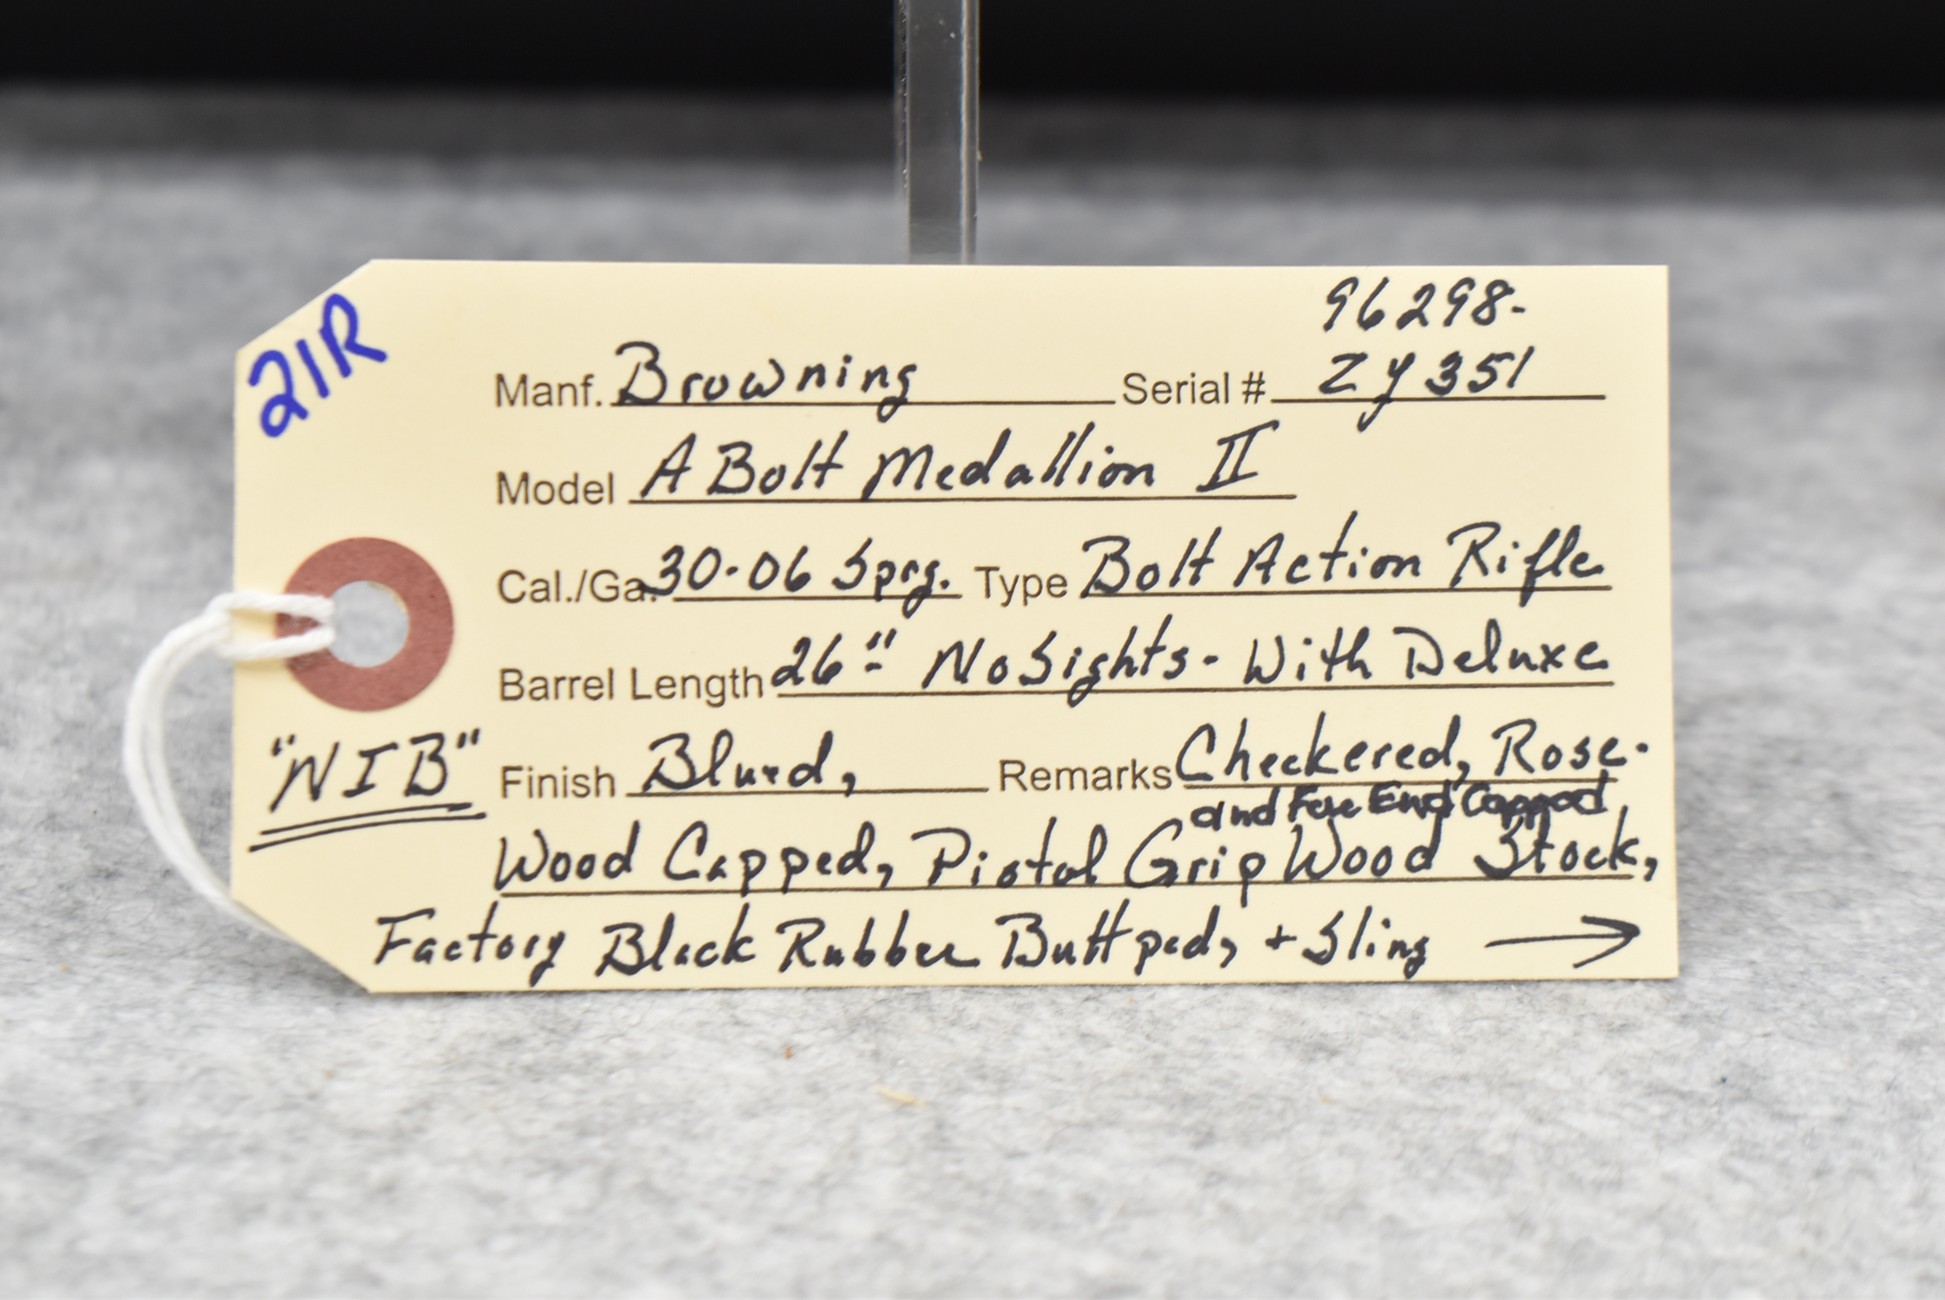 21R
96298-
Manf. Browning Serial # ZY351
Model A Bolt Medallion II
Cal./Ga. 30-06 Sprg. Type Bolt Action Rifle
Barrel Length 26" No Sights - With Deluxe
"NIB" Finish Blued, Remarks Checkered, Rose-
and Fore End Capped
Wood Capped, Pistol Grip Wood Stock,
Factory Black Rubber Buttpad, + Sling →